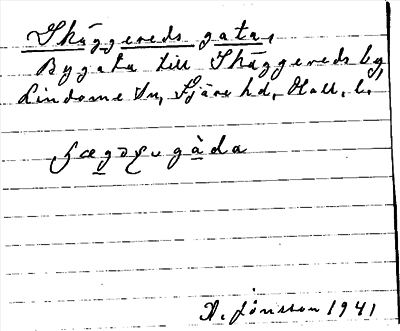 Skäggereds gata,
Bygata till Skäggereds by,
Lindome sn, Fjäre hd, Hall. l.
gàda
A. Jonsson 1941